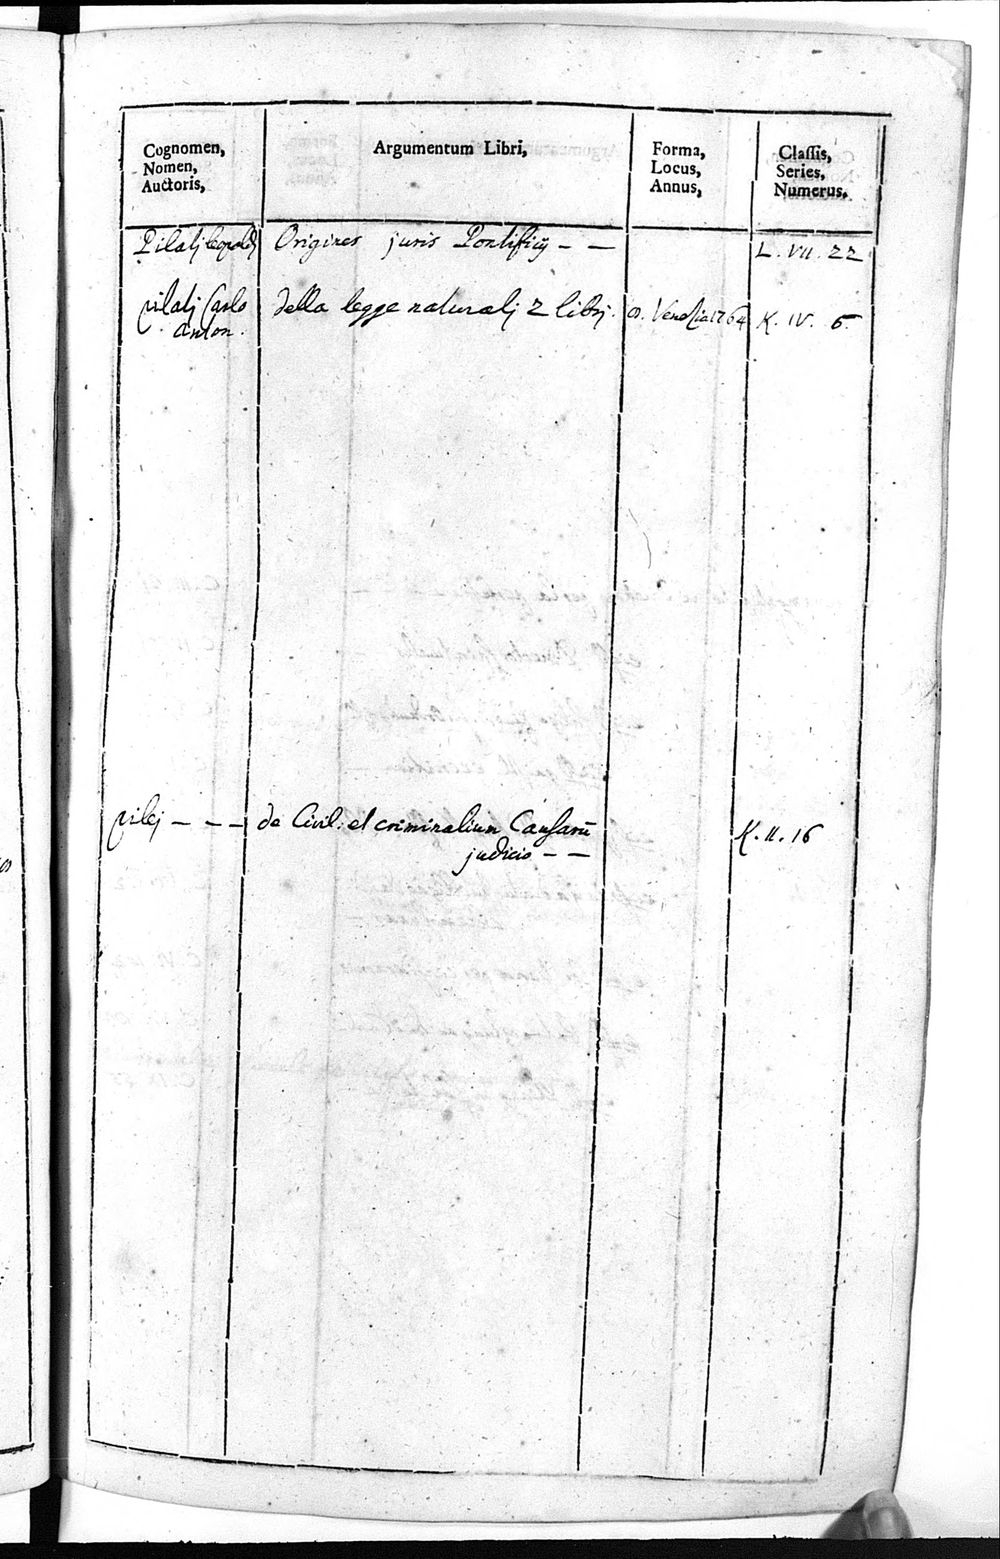 Cognomen,
Nomen,
Auctoris,
Argumentum Libri,
Forma,
Locus,
Annus,
Classis,
Series,
Numerus.
Pilatj Leopoldj Origines juris Pontificij – – L. VII. 22
Pilatj Carlo della legge naturalj 2 libri. 8. Venezia 1764 K. IV. 6.
Anton.
Pilej – – – de Civil: et criminalium Causarū K. II. 16
judicio – –